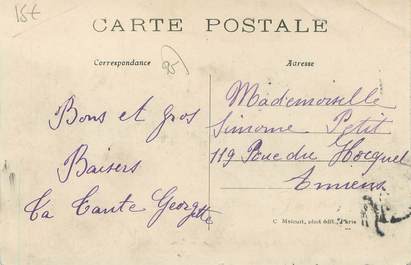 15€
CARTE POSTALE
95
Correspondance
Adresse
Bons et gros
Baisers
Ta Tante Georgette
Mademoiselle
Simone Petit
119 Rue du Hocquet
Amiens
phot édit., Paris